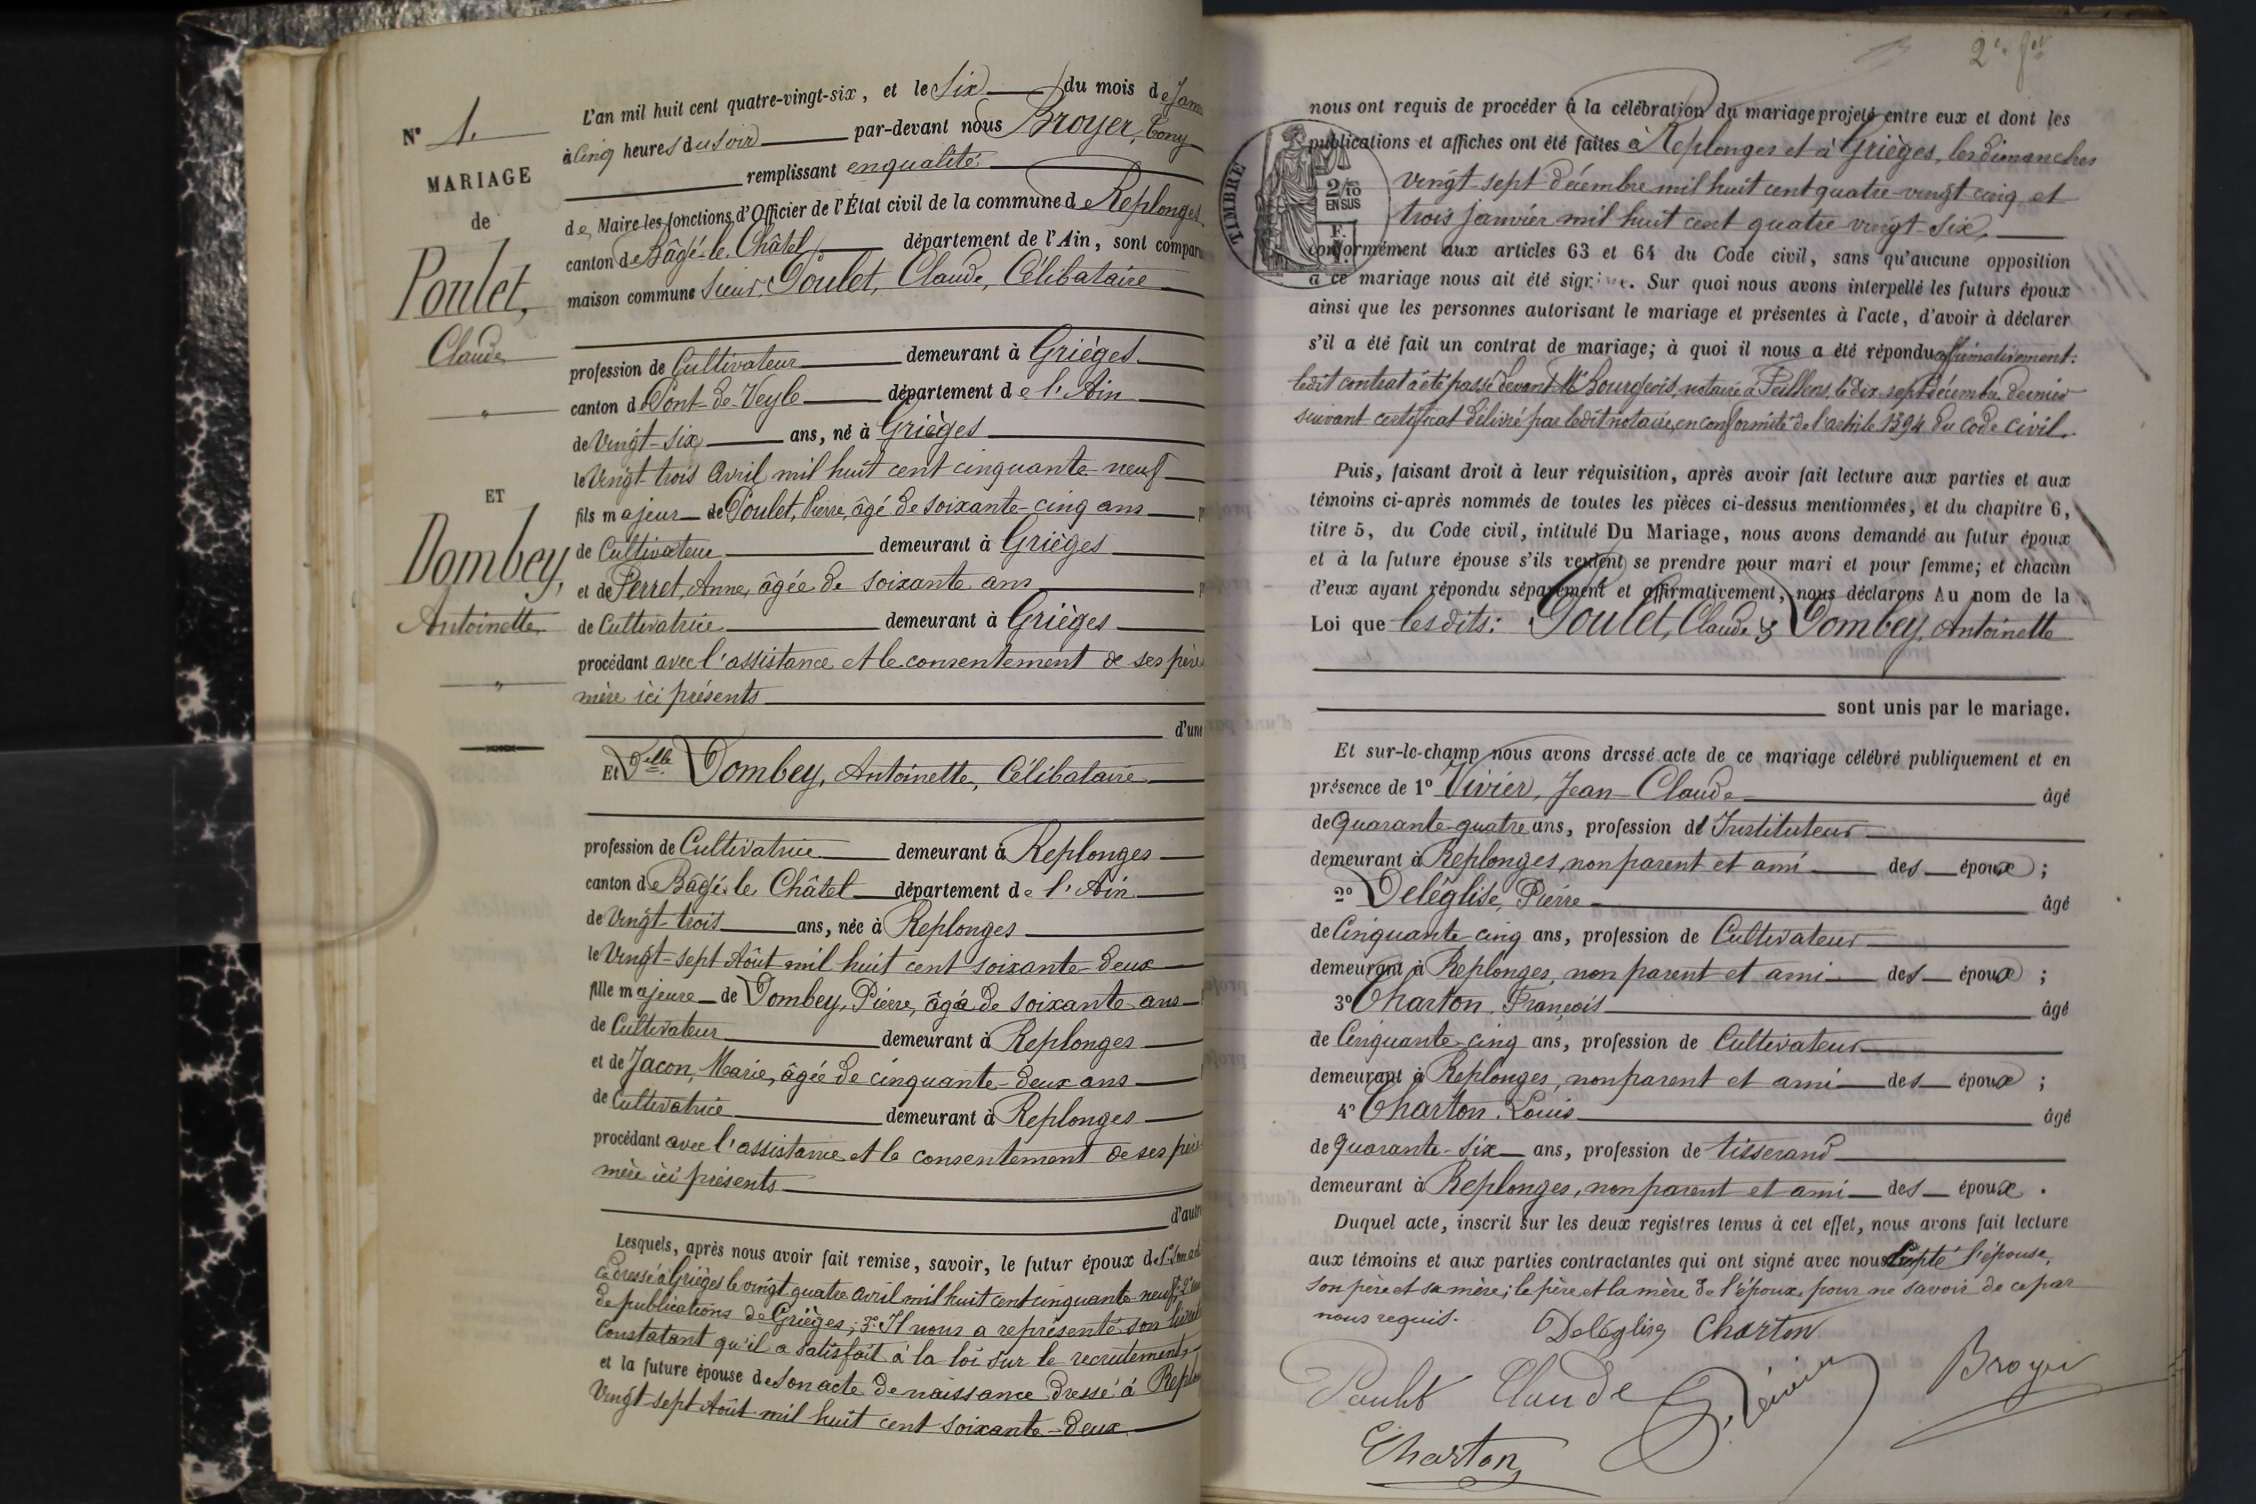 N° 1.
MARIAGE
de
Poulet,
Claude
ET
Dombey,
Antoinette
L'an mil huit cent quatre-vingt-six, et le Six du mois de Janv
à Cinq heures du soir par-devant nous Broyer, Tony
remplissant en qualité
de Maire les fonctions d'Officier de l'État civil de la commune de Replonges
canton de Bâgé-le-Châtel, département de l'Ain, sont compar
maison commune Sieur Poulet, Claude, Célibataire
profession de Cultivateur demeurant à Grièges
canton de Pont-de-Veyle département de l'Ain
de Vingt-six ans, né à Grièges
le Vingt-trois Avril mil huit cent cinquante-neuf
fils majeur de Poulet, Pierre, âgé de soixante-cinq ans
de Cultivateur demeurant à Grièges
et de Perret, Anne, âgée de soixante ans
de Cultivatrice demeurant à Grièges
procédant avec l'assistance et le consentement de ses père
mère ici présents
d'une
Et Delle Dombey, Antoinette, Célibataire
profession de Cultivatrice demeurant à Replonges
canton de Bâgé-le-Châtel département de l'Ain
de Vingt-trois ans, née à Replonges
le Vingt-sept Août mil huit cent soixante-deux
fille majeure de Dombey, Pierre, âgé de soixante ans
de Cultivateur demeurant à Replonges
et de Jacon, Marie, âgée de cinquante-deux ans
de Cultivatrice demeurant à Replonges
procédant avec l'assistance et le consentement de ses père
mère ici présents
d'autre
Lesquels, après nous avoir fait remise, savoir, le futur époux de 1° Son
dressé à Grièges le vingt quatre avril mil huit cent cinquante-neuf; 2°
de publications de Grièges; 3° Il nous a représenté son livret
Constatant qu'il a satisfait à la loi sur le recrutement
et la future épouse de Son acte de naissance dressé à Replon
Vingt sept Août mil huit cent soixante-deux
2e
nous ont requis de procéder à la célébration du mariage projeté entre eux et dont les
publications et affiches ont été faites à Replonges et à Grièges, les dimanches
vingt-sept décembre mil huit cent quatre-vingt-cinq et
trois janvier mil huit cent quatre vingt-six,
conformément aux articles 63 et 64 du Code civil, sans qu'aucune opposition
à ce mariage nous ait été signifiée. Sur quoi nous avons interpellé les futurs époux
ainsi que les personnes autorisant le mariage et présentes à l'acte, d'avoir à déclarer
s'il a été fait un contrat de mariage; à quoi il nous a été répondu affirmativement:
ledit contrat a été passé devant Me Bourgeois, notaire à Feillens, le dix-sept décembre dernier
suivant certificat délivré par ledit notaire, en conformité de l'article 1394 du Code civil.
TIMBRE
2/10
EN SUS
Puis, faisant droit à leur réquisition, après avoir fait lecture aux parties et aux
témoins ci-après nommés de toutes les pièces ci-dessus mentionnées, et du chapitre 6,
titre 5, du Code civil, intitulé Du Mariage, nous avons demandé au futur époux
et à la future épouse s'ils veulent se prendre pour mari et pour femme; et chacun
d'eux ayant répondu séparément et affirmativement, nous déclarons Au nom de la
Loi que lesdits: Poulet, Claude & Dombey, Antoinette
sont unis par le mariage.
Et sur-le-champ nous avons dressé acte de ce mariage célébré publiquement et en
présence de 1° Vivier, Jean-Claude âgé
de Quarante-quatre ans, profession d'Instituteur
demeurant à Replonges, non parent et ami des époux;
2° Deléglise, Pierre âgé
de Cinquante-cinq ans, profession de Cultivateur
demeurant à Replonges, non parent et ami des époux;
3° Charton, François âgé
de Cinquante-cinq ans, profession de Cultivateur
demeurant à Replonges, non parent et ami des époux;
4° Charton, Louis âgé
de Quarante-six ans, profession de tisserand
demeurant à Replonges, non parent et ami des époux.
Duquel acte, inscrit sur les deux registres tenus à cet effet, nous avons fait lecture
aux témoins et aux parties contractantes qui ont signé avec nous excepté l'épouse,
son père et sa mère; le père et la mère de l'époux pour ne savoir de ce par
nous requis.
Deléglise Charton
Poulet Claude Vivier Broyer
Charton